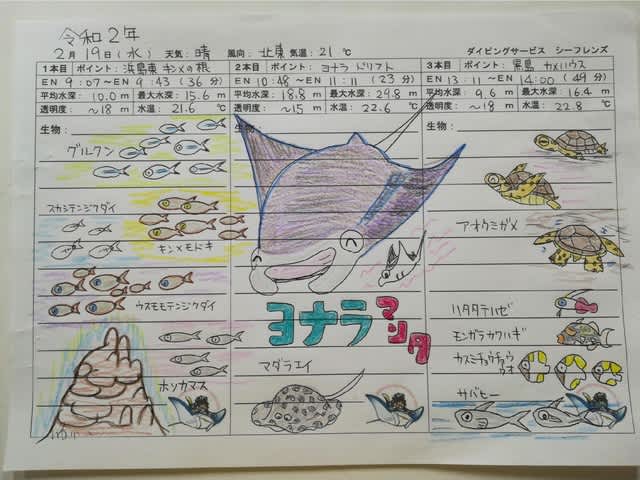 令和2年
2月19日(水) 天気:晴 風向:北東 気温:21℃ ダイビングサービス シーフレンズ
1本目 ポイント:浜島東 キンメの根
EN 9:07~EN 9:43(36分)
平均水深:10.0m 最大水深:15.6m
透明度:~18m 水温:21.6℃
生物:
グルクン
スカシテンジクダイ
キンメモドキ
ウスモモテンジクダイ
ホソカマス
2本目 ポイント:ヨナラ ドリフト
EN 10:48~EN 11:11(23分)
平均水深:18.8m 最大水深:29.8m
透明度:~15m 水温:22.6℃
生物:
ヨナラ
マンタ
マダラエイ
3本目 ポイント:黒島 カメハウス
EN 13:11~EN 14:00(49分)
平均水深:9.6m 最大水深:16.4m
透明度:~18m 水温:22.8℃
生物:
アオウミガメ
ハタタテハゼ
モンガラカワハギ
カスミチョウチョウ
ウオ
サバヒー